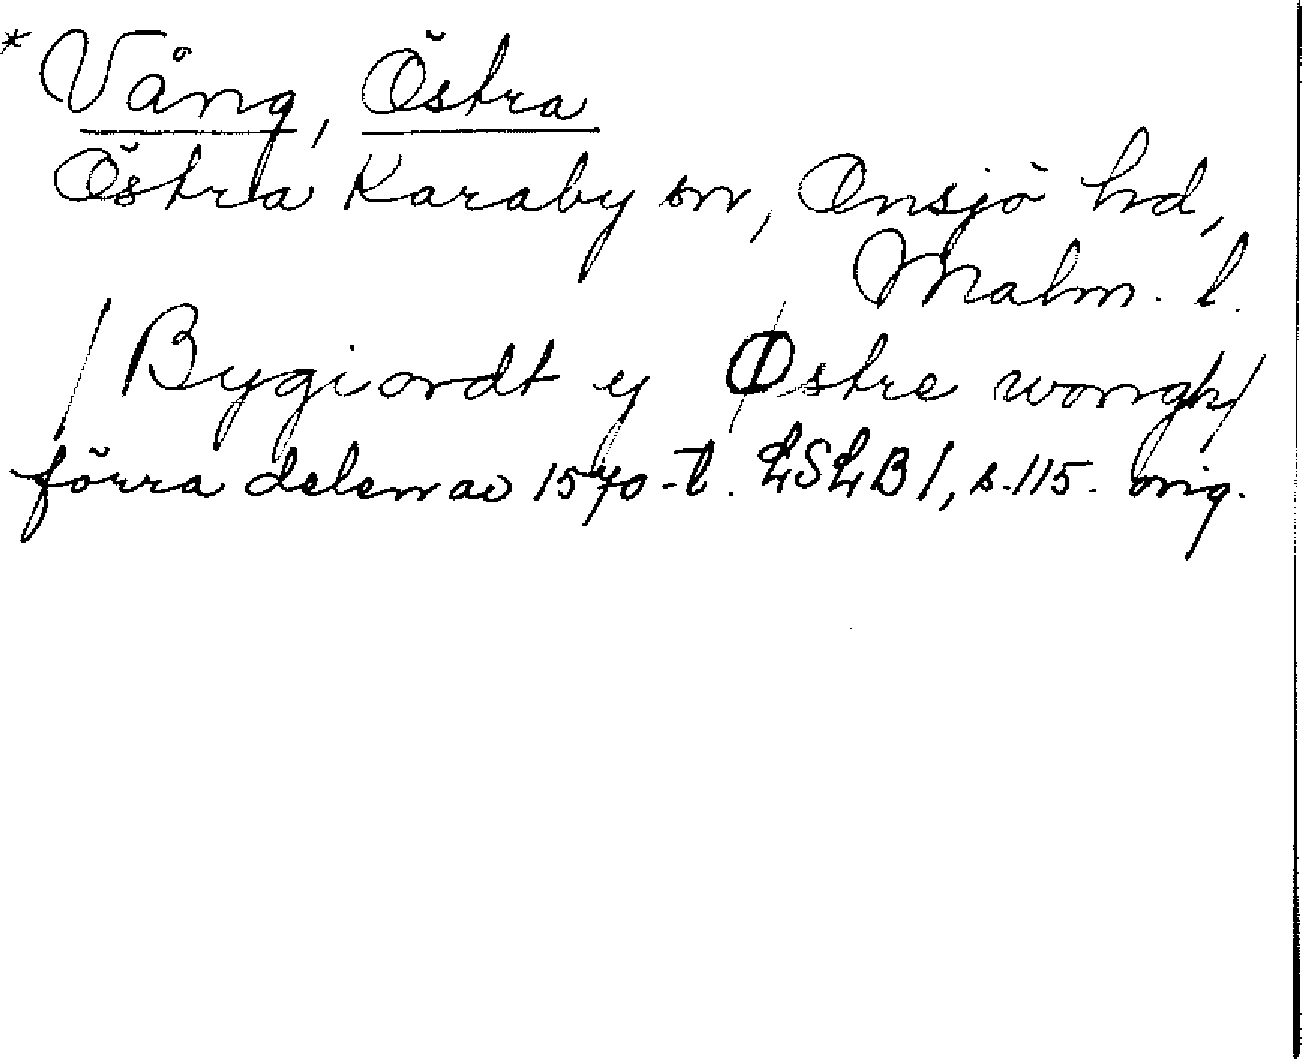 *Vång, Östra
Östra Karaby sn, Onsjö hd,
Malm. l.
/Bygiordt y Østre wongh/
förra delen av 1570-t. LSLB1, s.115. orig.